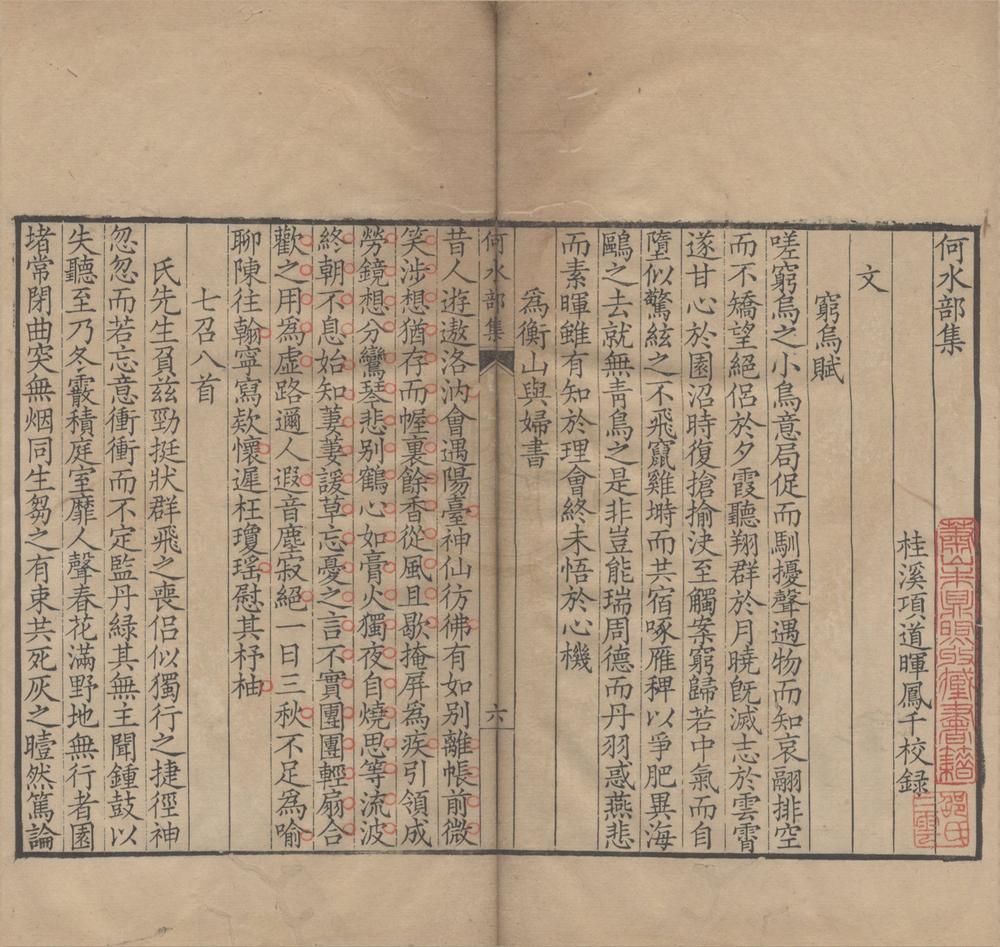 何水部集
桂溪項道暉鳳千校録
文
窮烏賦
嗟窮烏之小鳥意局促而馴擾聲遇物而知哀翮排空
而不矯望絕侶於夕霞聽翔群於月曉旣滅志於雲霄
遂甘心於園沼時復搶揄決至觸案窮歸若中氣而自
墮似驚絃之不飛竄雞塒而共宿啄雁稗以爭肥異海
鷗之去就無靑鳥之是非豈能瑞周德而丹羽惑燕悲
而素暉雖有知於理會終未悟於心機
爲衡山與婦書
何水部集
六
昔人遊遨洛汭會遇陽臺神仙彷彿有如别離帳前微
笑涉想猶存而幄裏餘香從風且歇掩屏爲疾引領成
勞鏡想分鸞琴悲别鶴心如膏火獨夜自燒思等流波
終朝不息始知萋萋諼草忘憂之言不實團團輕扇合
歡之用為虛路邇人遐音塵寂絕一日三秋不足為喻
聊陳往翰寧寫欵懷遲枉瓊瑤慰其杼柚
七召八首
氏先生負茲勁挺狀群飛之喪侶似獨行之捷徑神
忽忽而若忘意衝衝而不定監丹緑其無主聞鍾鼓以
失聽至乃冬霰積庭室靡人聲春花滿野地無行者園
堵常閉曲突無烟同生芻之有束共死灰之曀然篤論
蕭山朱鼎煦收藏書籍
邵氏二雲